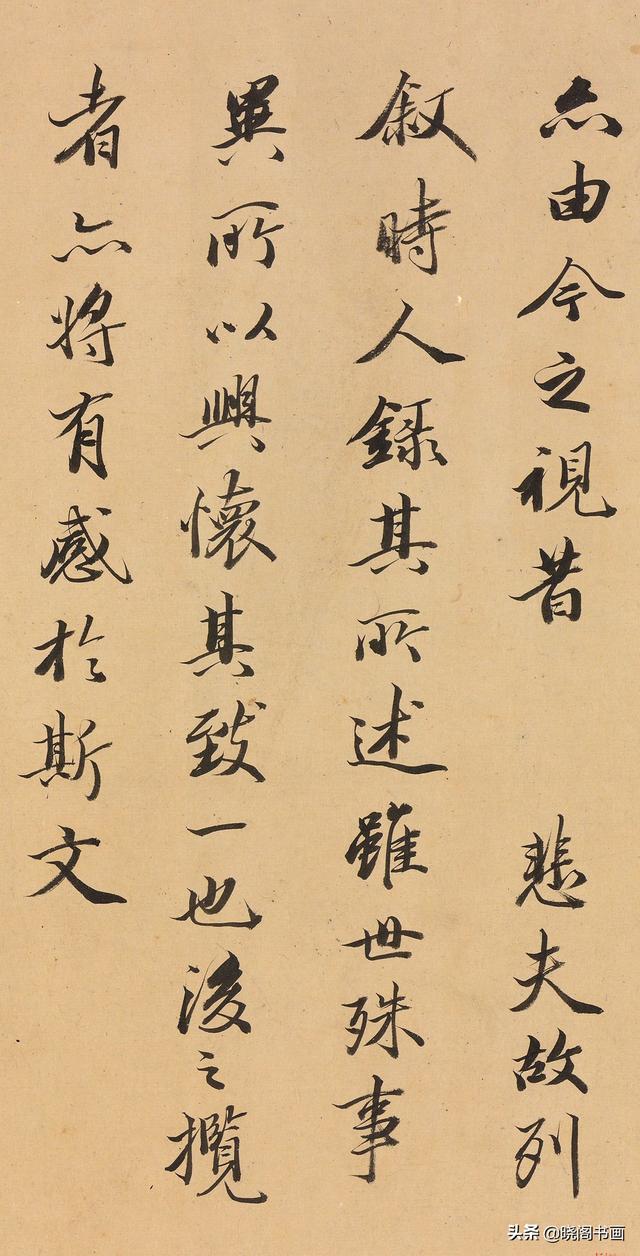 亦由今之視昔 悲夫故列
敘時人錄其所述雖世殊事
異所以興懷其致一也後之攬
者亦將有感於斯文
头条 @晓阁书画